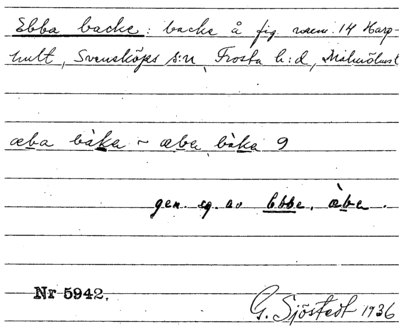 Ebba backe: backe å fig. num. 14 Harp-
hult, Svensköps s:n, Frosta h:d, Malmöhus l
æba bàka ~ æba bàka 9
gen. sg. av Ebbe, æ̀be.
Nr 5942.
G. Sjöstedt 1936